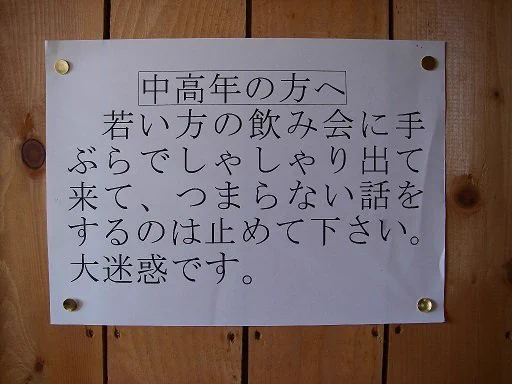 中高年の方へ
若い方の飲み会に手
ぶらでしゃしゃり出て
来て、つまらない話を
するのは止めて下さい。
大迷惑です。